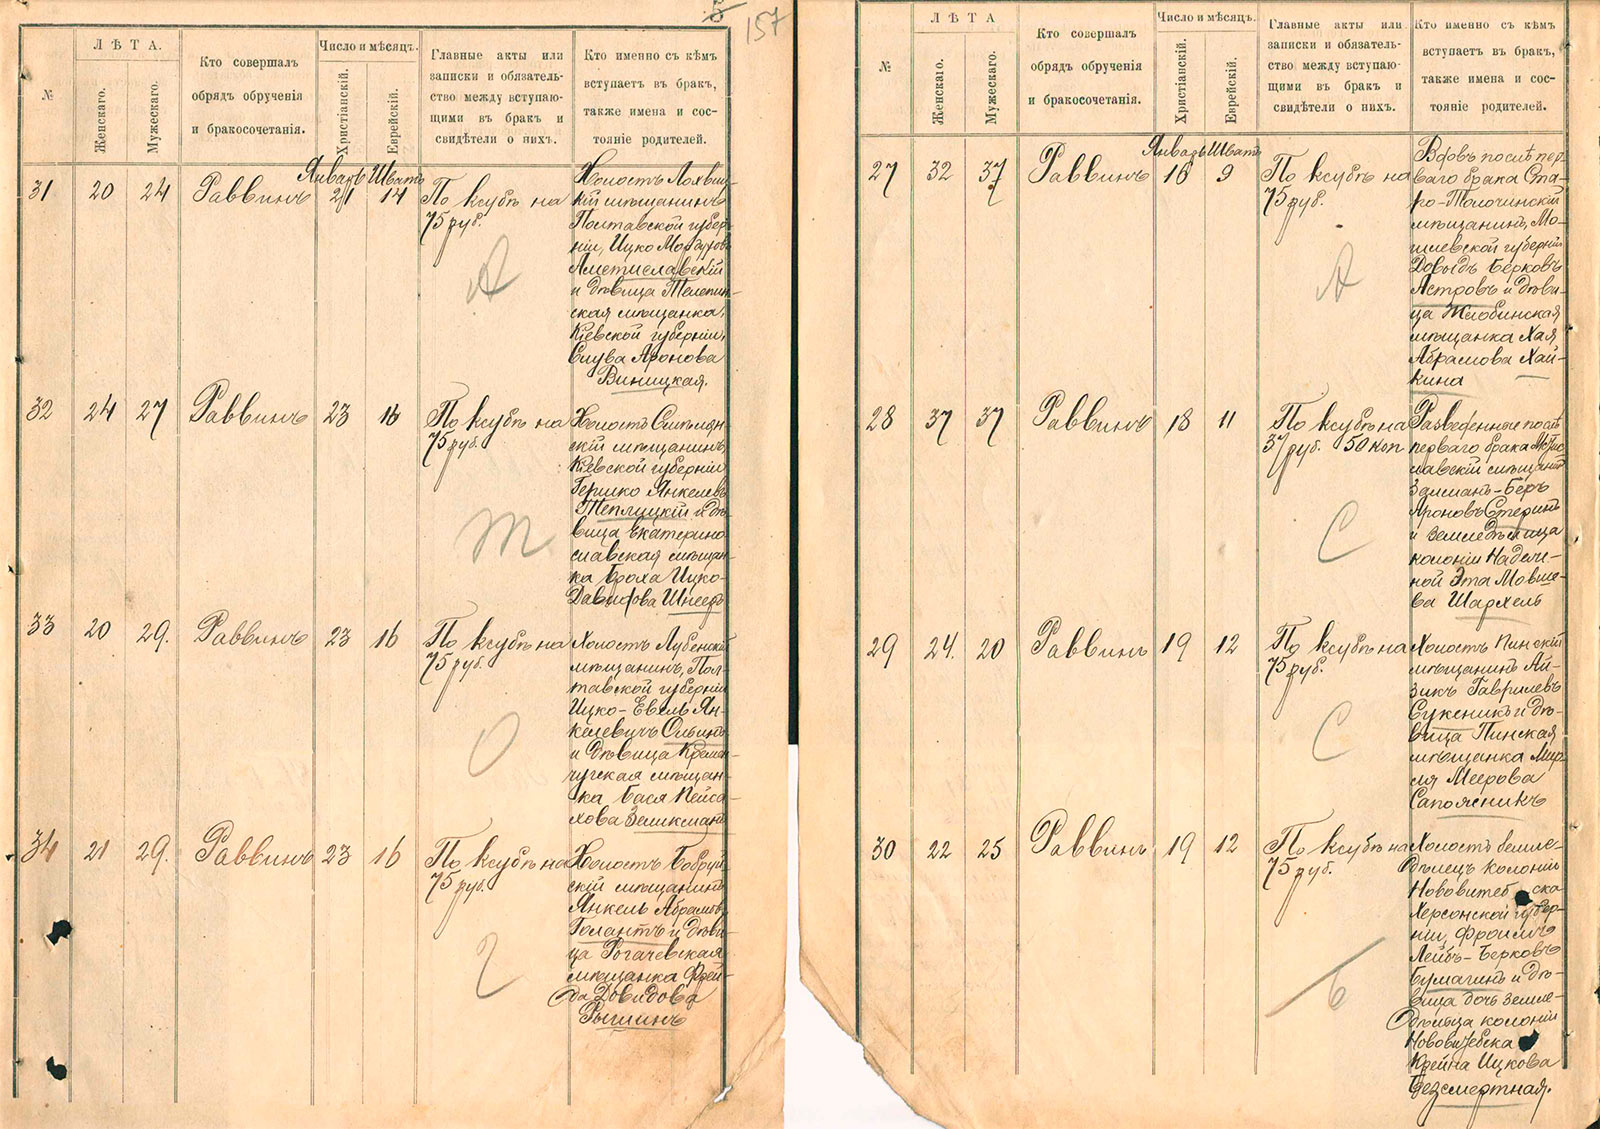 157
№
ЛѢТА.
Женскаго.
Мужескаго.
Кто совершалъ
обрядъ обрученія
и бракосочетанія.
Число и мѣсяцъ.
Христіанскій.
Еврейскій.
Главные акты или
записки и обязатель-
ство между вступаю-
щими въ бракъ и
свидѣтели о нихъ.
Кто именно съ кѣмъ
вступаетъ въ бракъ,
также имена и сос-
тояніе родителей.
Январь Шватъ
31 20 24 Раввинъ 21 14
По ксубѣ на
75 руб.
А
Холостъ Лохвиц-
кій мѣщанинъ
Полтавской губер-
ніи, Ицко
Амстиславскій
и дѣвица Телепин-
ская мѣщанка,
Кіевской губерніи,
Слува Аронова
Виницкая.
32 24 27 Раввинъ 23 16
По ксубѣ на
75 руб.
Т
Холостъ Смѣлян-
скій мѣщанинъ,
Кіевской губерніи
Гершко Янкелевъ
Теплицкій и дѣ-
вица Екатерино-
славская мѣщан-
ка Броха Ицко-
Давидова Шнееръ
33 20 29. Раввинъ 23 16
По ксубѣ на
75 руб.
О
Холостъ Лубенскій
мѣщанинъ, Пол-
тавской губерніи
Ицко-Евель Ян-
келевичъ
и дѣвица Кремен-
чугская мѣщан-
ка Бася Пейса-
хова Зеликманъ
34 21 29. Раввинъ 23 16
По ксубѣ на
75 руб.
Г
Холостъ Бобруй-
скій мѣщанинъ
Янкель Абрамовъ
Голантъ и дѣви-
ца Рогачевская
мѣщанка Фрей-
да Довидова
Рыглинъ
№
ЛѢТА
Женскаго.
Мужескаго.
Кто совершалъ
обрядъ обрученія
и бракосочетанія.
Число и мѣсяцъ.
Христіанскій.
Еврейскій.
Главные акты или
записки и обязатель-
ство между вступаю-
щими въ бракъ и
свидѣтели о нихъ.
Кто именно съ кѣмъ
вступаетъ въ бракъ,
также имена и сос-
тояніе родителей.
Январь Шватъ
27 32 37 Раввинъ 16 9
По ксубѣ на
75 руб.
А
Вдовъ послѣ пер-
ваго брака Ста-
ро-Толочинскій
мѣщанинъ, Мо-
гилевской губерніи
Довидъ Берковъ
Астровъ и дѣви-
ца Жлобинская
мѣщанка Хая
Абрамова Хай-
кина
28 37 37 Раввинъ 18 11
По ксубѣ на
37 руб. 50 коп
С
Разведенные послѣ
перваго брака Мстис-
лавскій мѣщанинъ
Залманъ-Беръ
Ароновъ Стеринъ
и земледѣлица
колоніи Надеж-
ной Эта Мовше-
ва Шархель
29 24. 20 Раввинъ 19 12
По ксубѣ на
75 руб.
С
Холостъ Пинскій
мѣщанинъ Ай-
зикъ Гавриловъ
Сукеникъ и дѣ-
вица Пинская
мѣщанка Мир-
ля Меерова
Сапожникъ
30 22 25 Раввинъ 19 12
По ксубѣ на
75 руб.
Б
Холостъ земле-
дѣлецъ колоніи
Нововитебска
Херсонской губер-
ніи, Фроимъ
Лейбъ-Берковъ
Бумагинъ и дѣ-
вица дочь земле-
дѣльца колоніи
Нововитебска
Крейна Ицкова
Безсмертная.